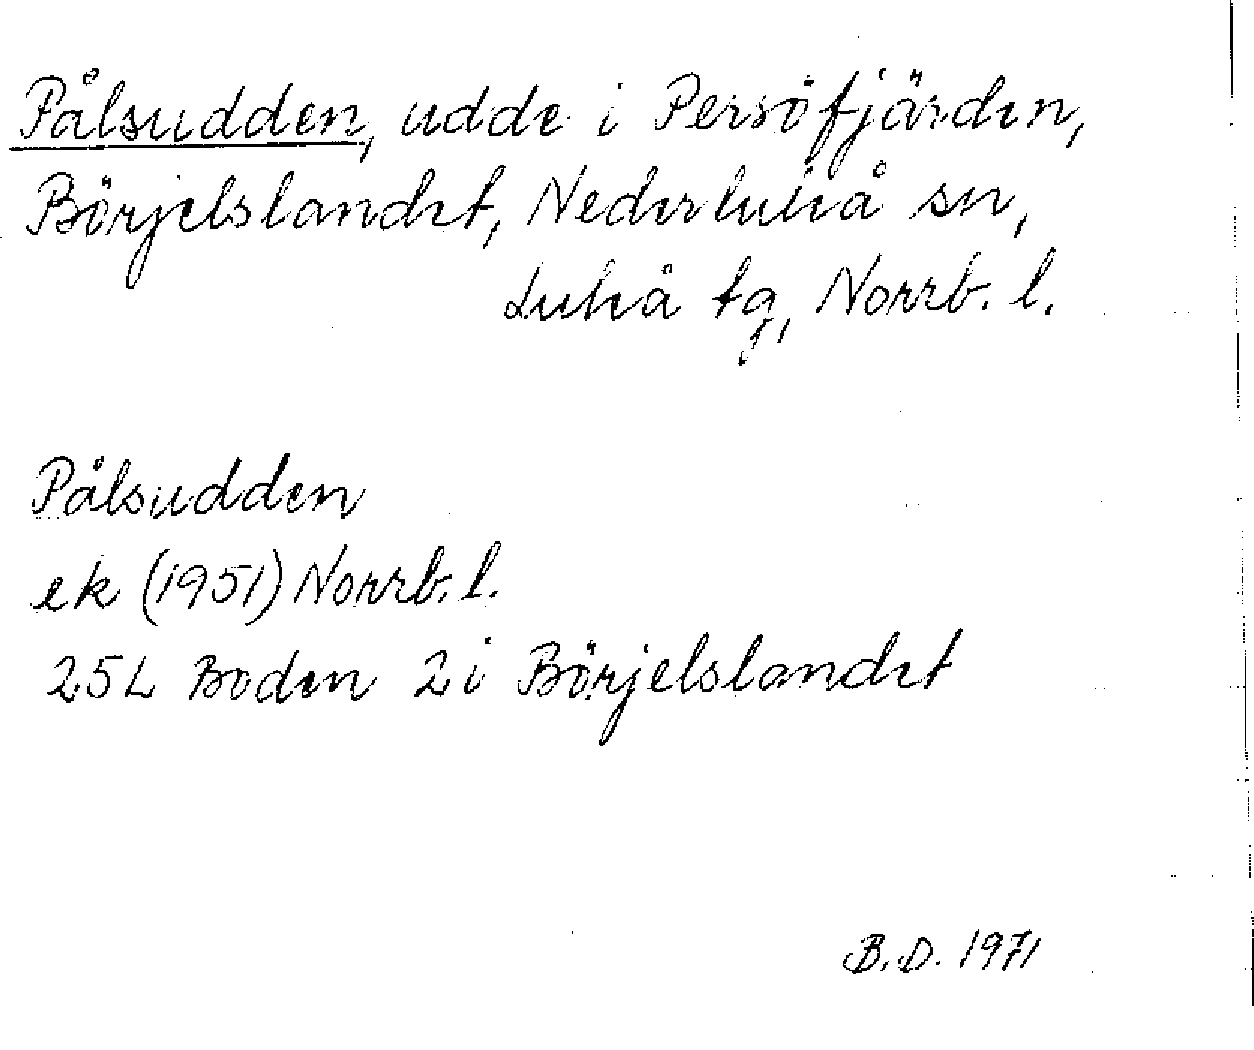 Pålsudden, udde i Persöfjärden,
Börjelslandet, Nederluleå sn,
Luleå tg, Norrb. l.
Pålsudden
ek (1951) Norrb. l.
25L Boden 2i Börjelslandet
B.D. 1971